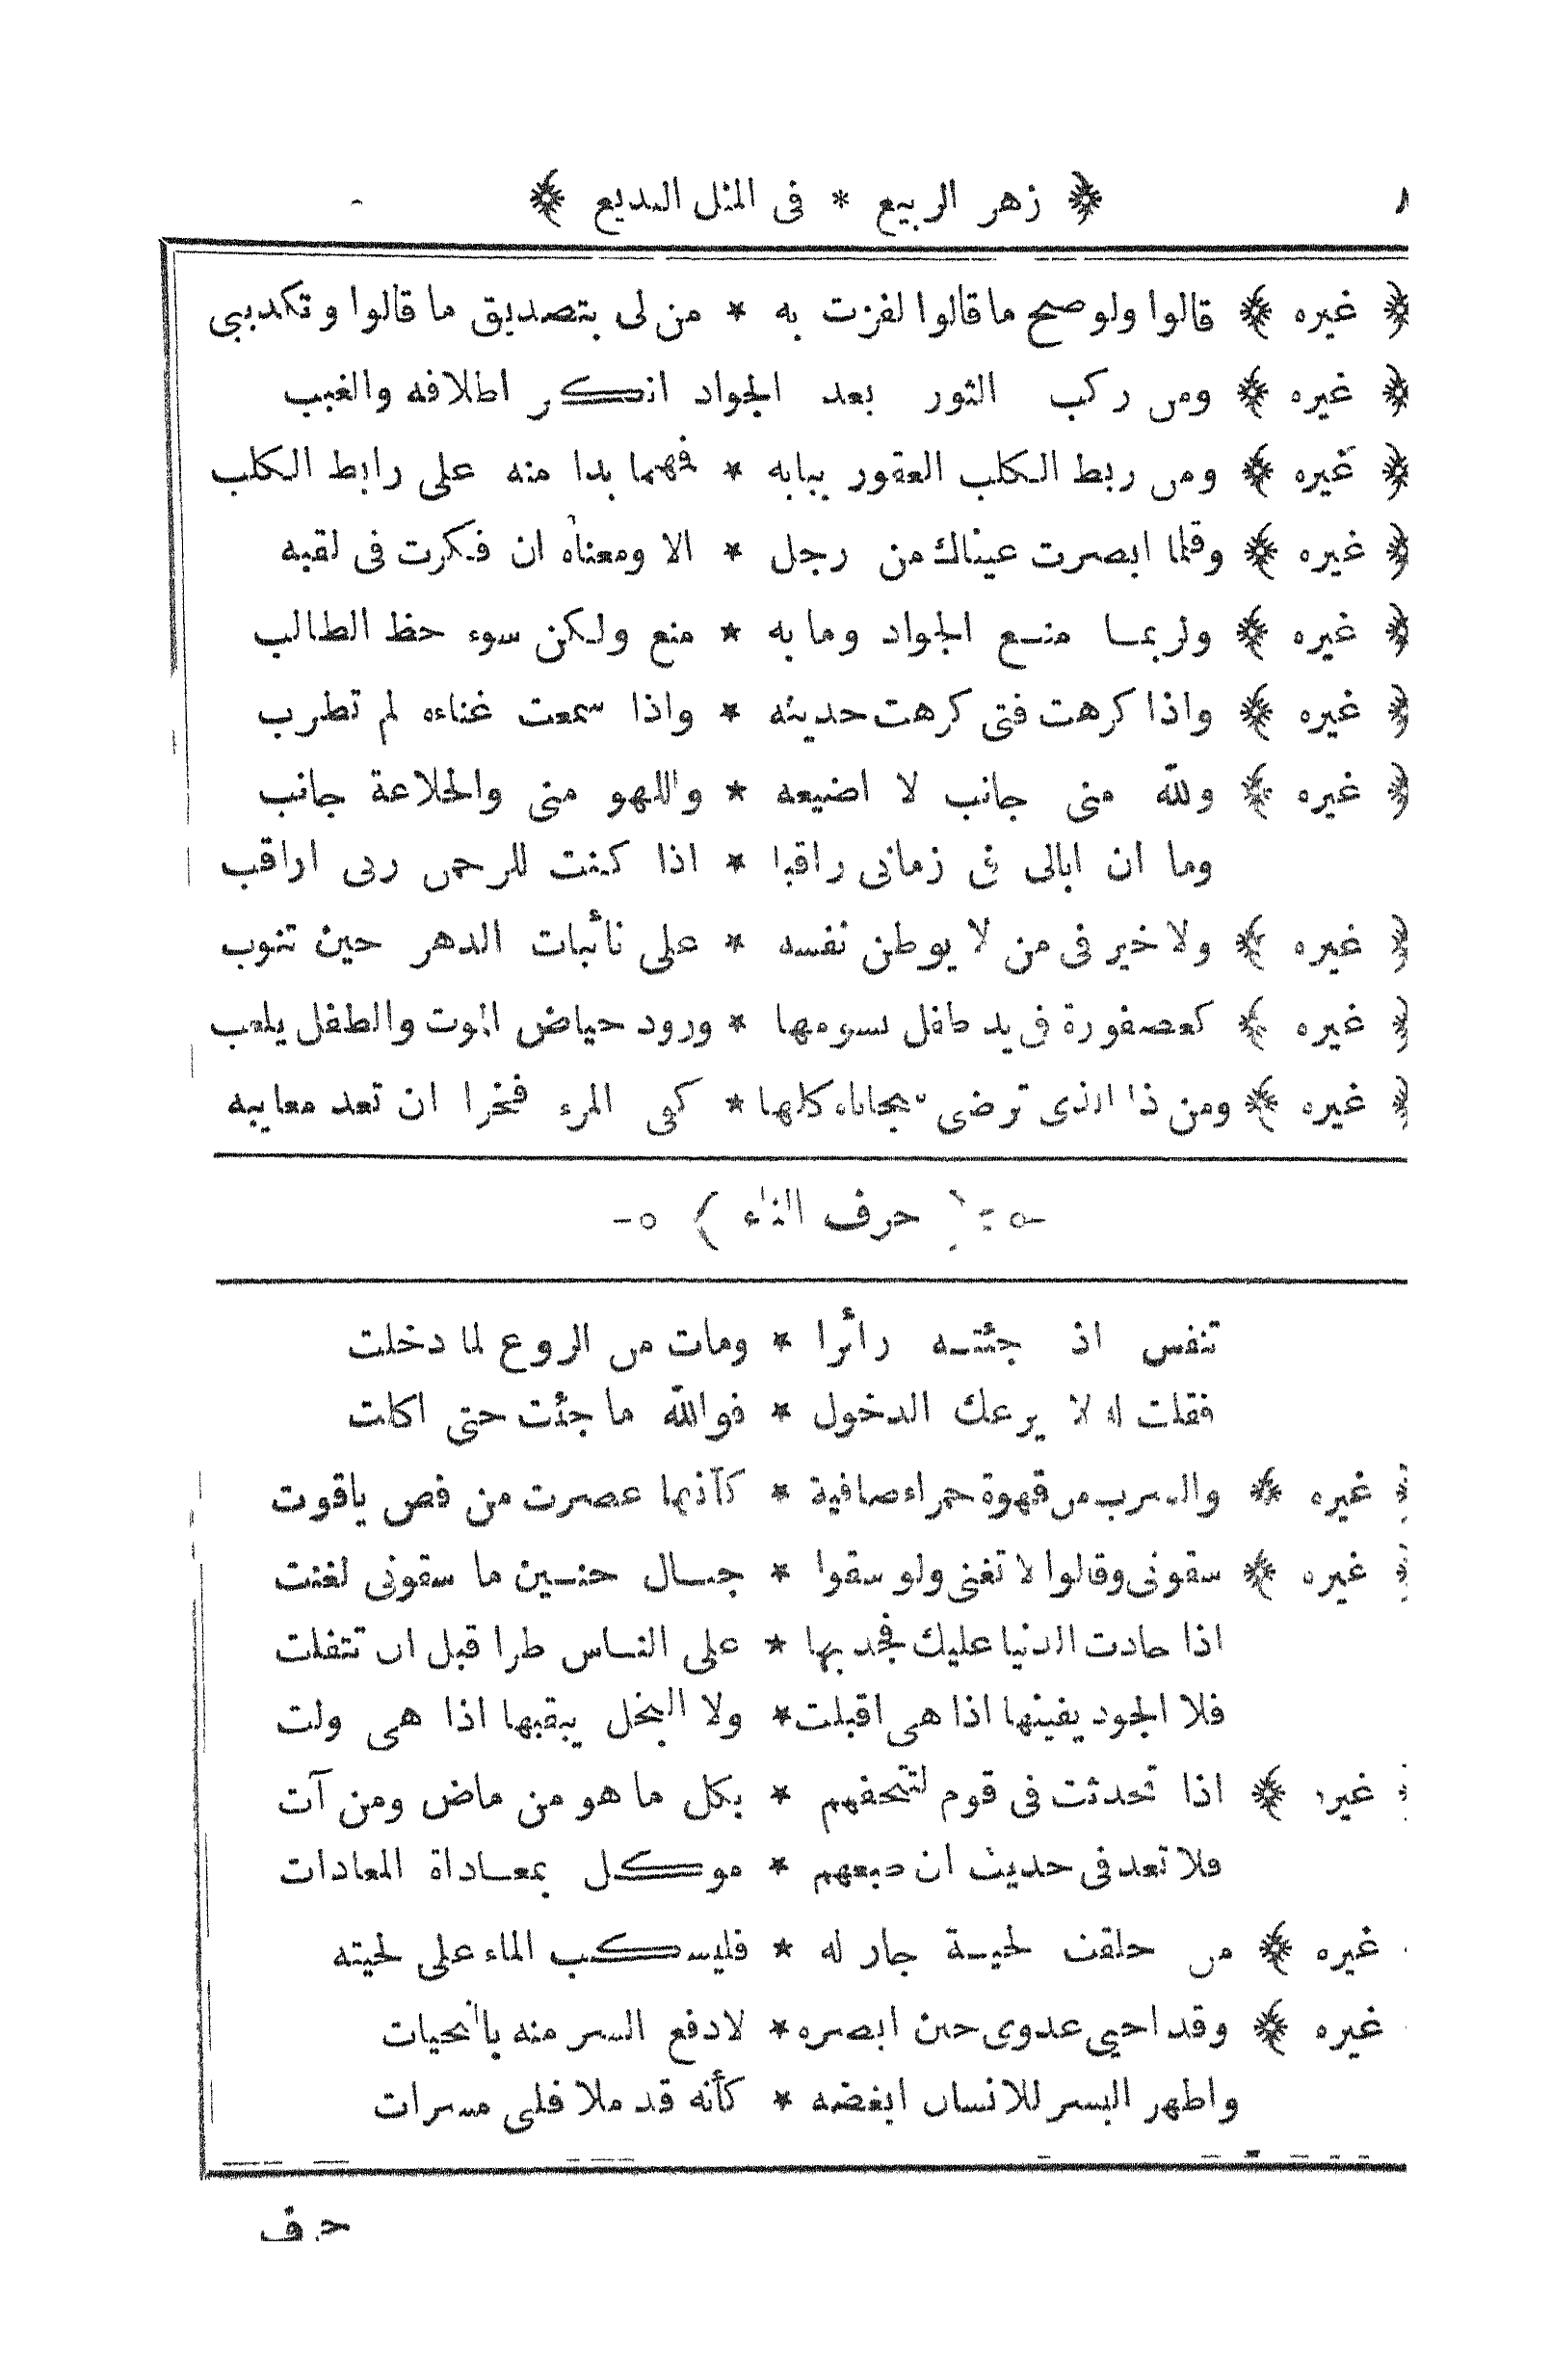 ٨ ﴿ زهر الربيع * فى المثل البديع ﴾
﴿ غيره ﴾ قالوا ولو صحح ما قالوا لفزت به * من لى بتصديق ما قالوا وتكذيبى
﴿ غيره ﴾ ومن ركب الثور بعد الجواد انكر اظلافه والغبب
﴿ غيره ﴾ ومن ربط الكلب العقور ببابه * فهما بدا منه على رابط الكلب
﴿ غيره ﴾ وقلما ابصرت عيناك من رجل * الا ومعناه ان فكرت فى لقبه
﴿ غيره ﴾ ولربمـا منـع الجواد وما به * منع ولكن سوء حظ الطالب
﴿ غيره ﴾ واذا كرهت فتى كرهت حديثه * واذا سمعت غناءه لم تطرب
﴿ غيره ﴾ ولله منى جانب لا اضيعه * واللهو منى والخلاعة جانب
وما ان ابالى فى زمانى راقبا * اذا كنت للرحمن ربى اراقب
﴿ غيره ﴾ ولا خير فى من لا يوطن نفسه * على نائبات الدهر حين تنوب
﴿ غيره ﴾ كعصفورة فى يد طفل يسومها * ورود حياض الموت والطفل يلعب
﴿ غيره ﴾ ومن ذا الذى ترضى سجاياه كلها * كفى المرء فخرا ان تعد معايبه
﴿ حرف التاء ﴾
تنفس اذ جئتـه زائرا * ومات من الروع لما دخلت
فقلت له لا يرعك الدخول * فوالله ما جئت حتى اكلت
﴿ غيره ﴾ واشرب من قهوة حمراء صافية * كأنما عصرت من فص ياقوت
﴿ غيره ﴾ سقونى وقالوا لا تغنى ولو سقوا * جبـال حنـين ما سقونى لغنت
اذا جادت الدنيا عليك فجد بها * على النـاس طرا قبل ان تتفلت
فلا الجود يفنيها اذا هى اقبلت * ولا البخل يبقيها اذا هى ولت
﴿ غيره ﴾ اذا تحدثت فى قوم لتتحفهم * بكل ما هو من ماض ومن آت
فلا تعد فى حديث ان طبعهم * موكل بمعـاداة المعادات
﴿ غيره ﴾ من حلقت لحيـة جار له * فليسكب الماء على لحيته
﴿ غيره ﴾ وقد احيى عدوى حين ابصره * لادفع الشر منه بالتحيات
واظهر البشر للانسان ابغضه * كأنه قد ملا قلبى مسرات
حرف